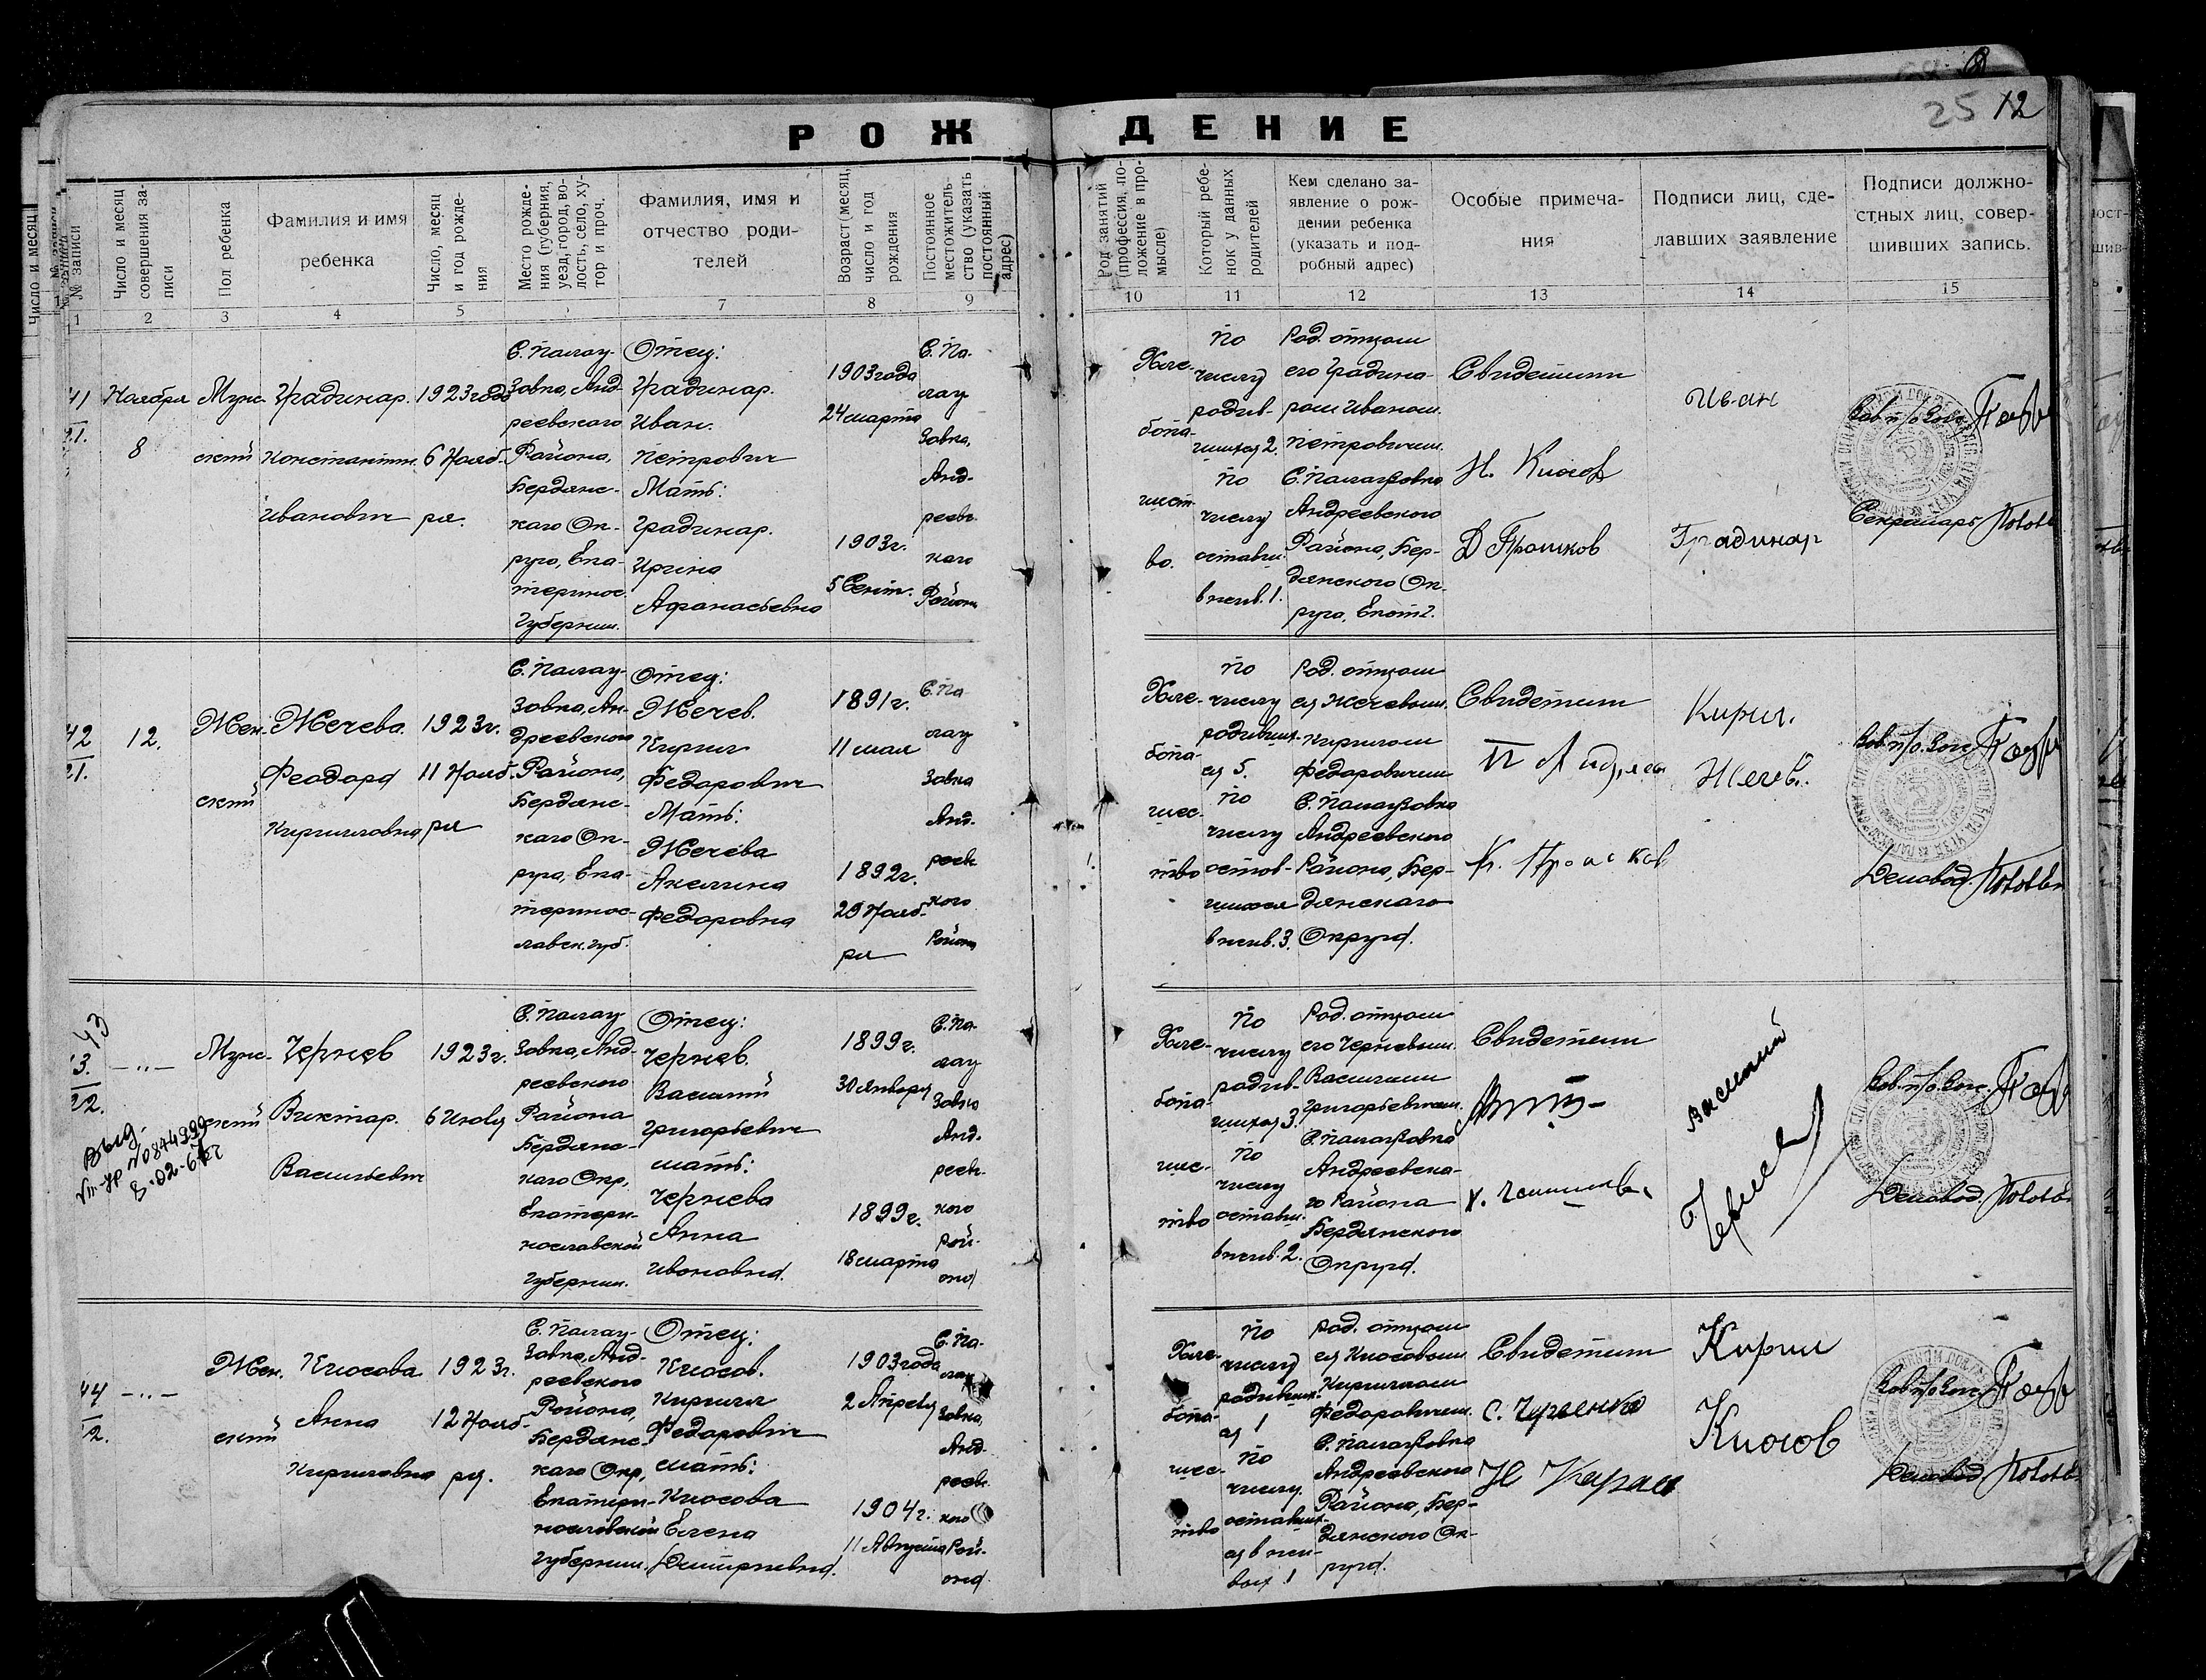 25 12
РОЖДЕНИЕ
№ записи
Число и месяц
совершения за-
писи
Пол ребенка
Фамилия и имя
ребенка
Число, месяц
и год рожде-
ния
Место рожде-
ния (губерния,
уезд, город, во-
лость, село, ху-
тор и проч.
Фамилия, имя и
отчество роди-
телей
Возраст (месяц,
число и год
рождения
Постоянное
местожитель-
ство (указать
постоянный
адрес)
Род занятий
(профессия, по-
ложение в про-
мысле)
Который ребе-
нок у данных
родителей
Кем сделано за-
явление о рож-
дении ребенка
(указать и под-
робный адрес)
Особые примеча-
ния
Подписи лиц, сде-
лавших заявление
Подписи должно-
стных лиц, совер-
шивших запись.
1 2 3 4 5 7 8 9 10 11 12 13 14 15
41
Ноября
8
Муж-
ский
Градинар.
Константин
Иванович
1923 года
6 Нояб-
ря.
С. Палау-
зовка, Анд-
реевского
Района,
Бердянс-
каго Ок-
руга, Ека-
теринос.
Губернии.
Отец:
Градинар.
Иван.
Петрович
Мать:
Градинар.
Ирина
Афанасьевна
1903 года
24 марта
1903 г.
5 Сент.
С. Па-
лау
зовка,
Анд-
реевс-
каго
Района
Хле-
бопа-
шест-
во.
По
числу
родив-
шихся 2.
По
числу
оставш.
в жив. 1.
Род. отцом
его Градина-
ром Иваном.
Петровичем.
С. Палаузовка
Андреевского
Района, Бер-
дянского Ок-
руга, Екат г.
Свидетели
Н. Киосов
Д Прошков
Иван
Градинар
Секретарь
42
12.
Жен-
ский
Жечева.
Феодора
Кирилловна
1923 г.
11 Нояб-
ря
С. Палау-
зовка, Ан-
дреевского
Района,
Бердянс-
каго Ок-
руга, Ека-
теринос-
лавск. губ.
Отец:
Жечев.
Кирил
Федорович
Мать:
Жечева
Акелина
Федоровна
1891 г.
11 мая
1892 г.
29 Нояб-
ря
С. Па-
лау
зовка
Анд-
реевс-
кого
Района
Хле-
бопа-
шес-
тво
По
числу
родивших-
ся 5.
По
числу
остав-
шихся
в жив. 3.
Род. отцом
ея Жечевым.
Кирилом
Федоровичем
С. Палаузовка
Андреевского
Района, Бер-
дянского
Округа.
Свидетели
Кирил.
Жечев.
Деловод.
43
— „ —
Выд.
Муж-
ский
Чернев
Виктор.
Васильевич
1923 г.
6 Июля
С. Палау-
зовка, Анд-
реевского
Района
Бердянс-
каго Окр,
Екатери-
нославской
Губернии.
Отец:
Чернев.
Василий
Григорьевич
мать:
Чернева
Анна
Ивановна.
1899 г.
30 Января
1899 г.
18 марта
С. Па-
лау
зовка
Анд-
реевс-
кого
Рай-
она
Хле-
бопа-
шес-
тво
По
числу
родив-
шихся 3.
По
числу
оставш.
в жив. 2.
Род. отцом
его Черневым.
Василием
Григорьевичем.
С. Палаузовка
Андреевска-
го Района
Бердянского
Округа.
Свидетели
Василий
Чернев
Деловод.
44
— „ —
Жен-
ский
Киосова
Анна
Кириловна
1923 г.
12 Нояб-
ря.
С. Палау-
зовка, Анд-
реевского
Района,
Бердянс-
каго Окр,
Екатери-
нославской
Губернии.
Отец:
Киосов.
Кирилл
Федорович
мать:
Киосова
Елена
Дмитриевна.
1903 года
2 Апреля
1904 г.
11 Августа
С. Па-
лау
зовка,
Анд-
реевс-
кого
Рай-
она
Хле-
бопа-
шес-
тво
По
числу
родивших-
ся 1
По
числу.
оставших-
ся в жи-
вых 1
Род. отцом
ея Киосовым
Кирилом
Федоровичем.
С. Палаузовка
Андреевского
Района, Бер-
дянского Ок-
руга.
Свидетели
Кирил
Киосов
Деловод.